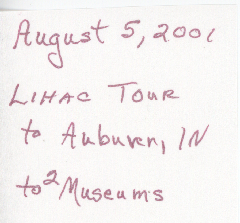 August 5, 2001
LIHAC TOUR
to Auburn, IN
to 2 Museums